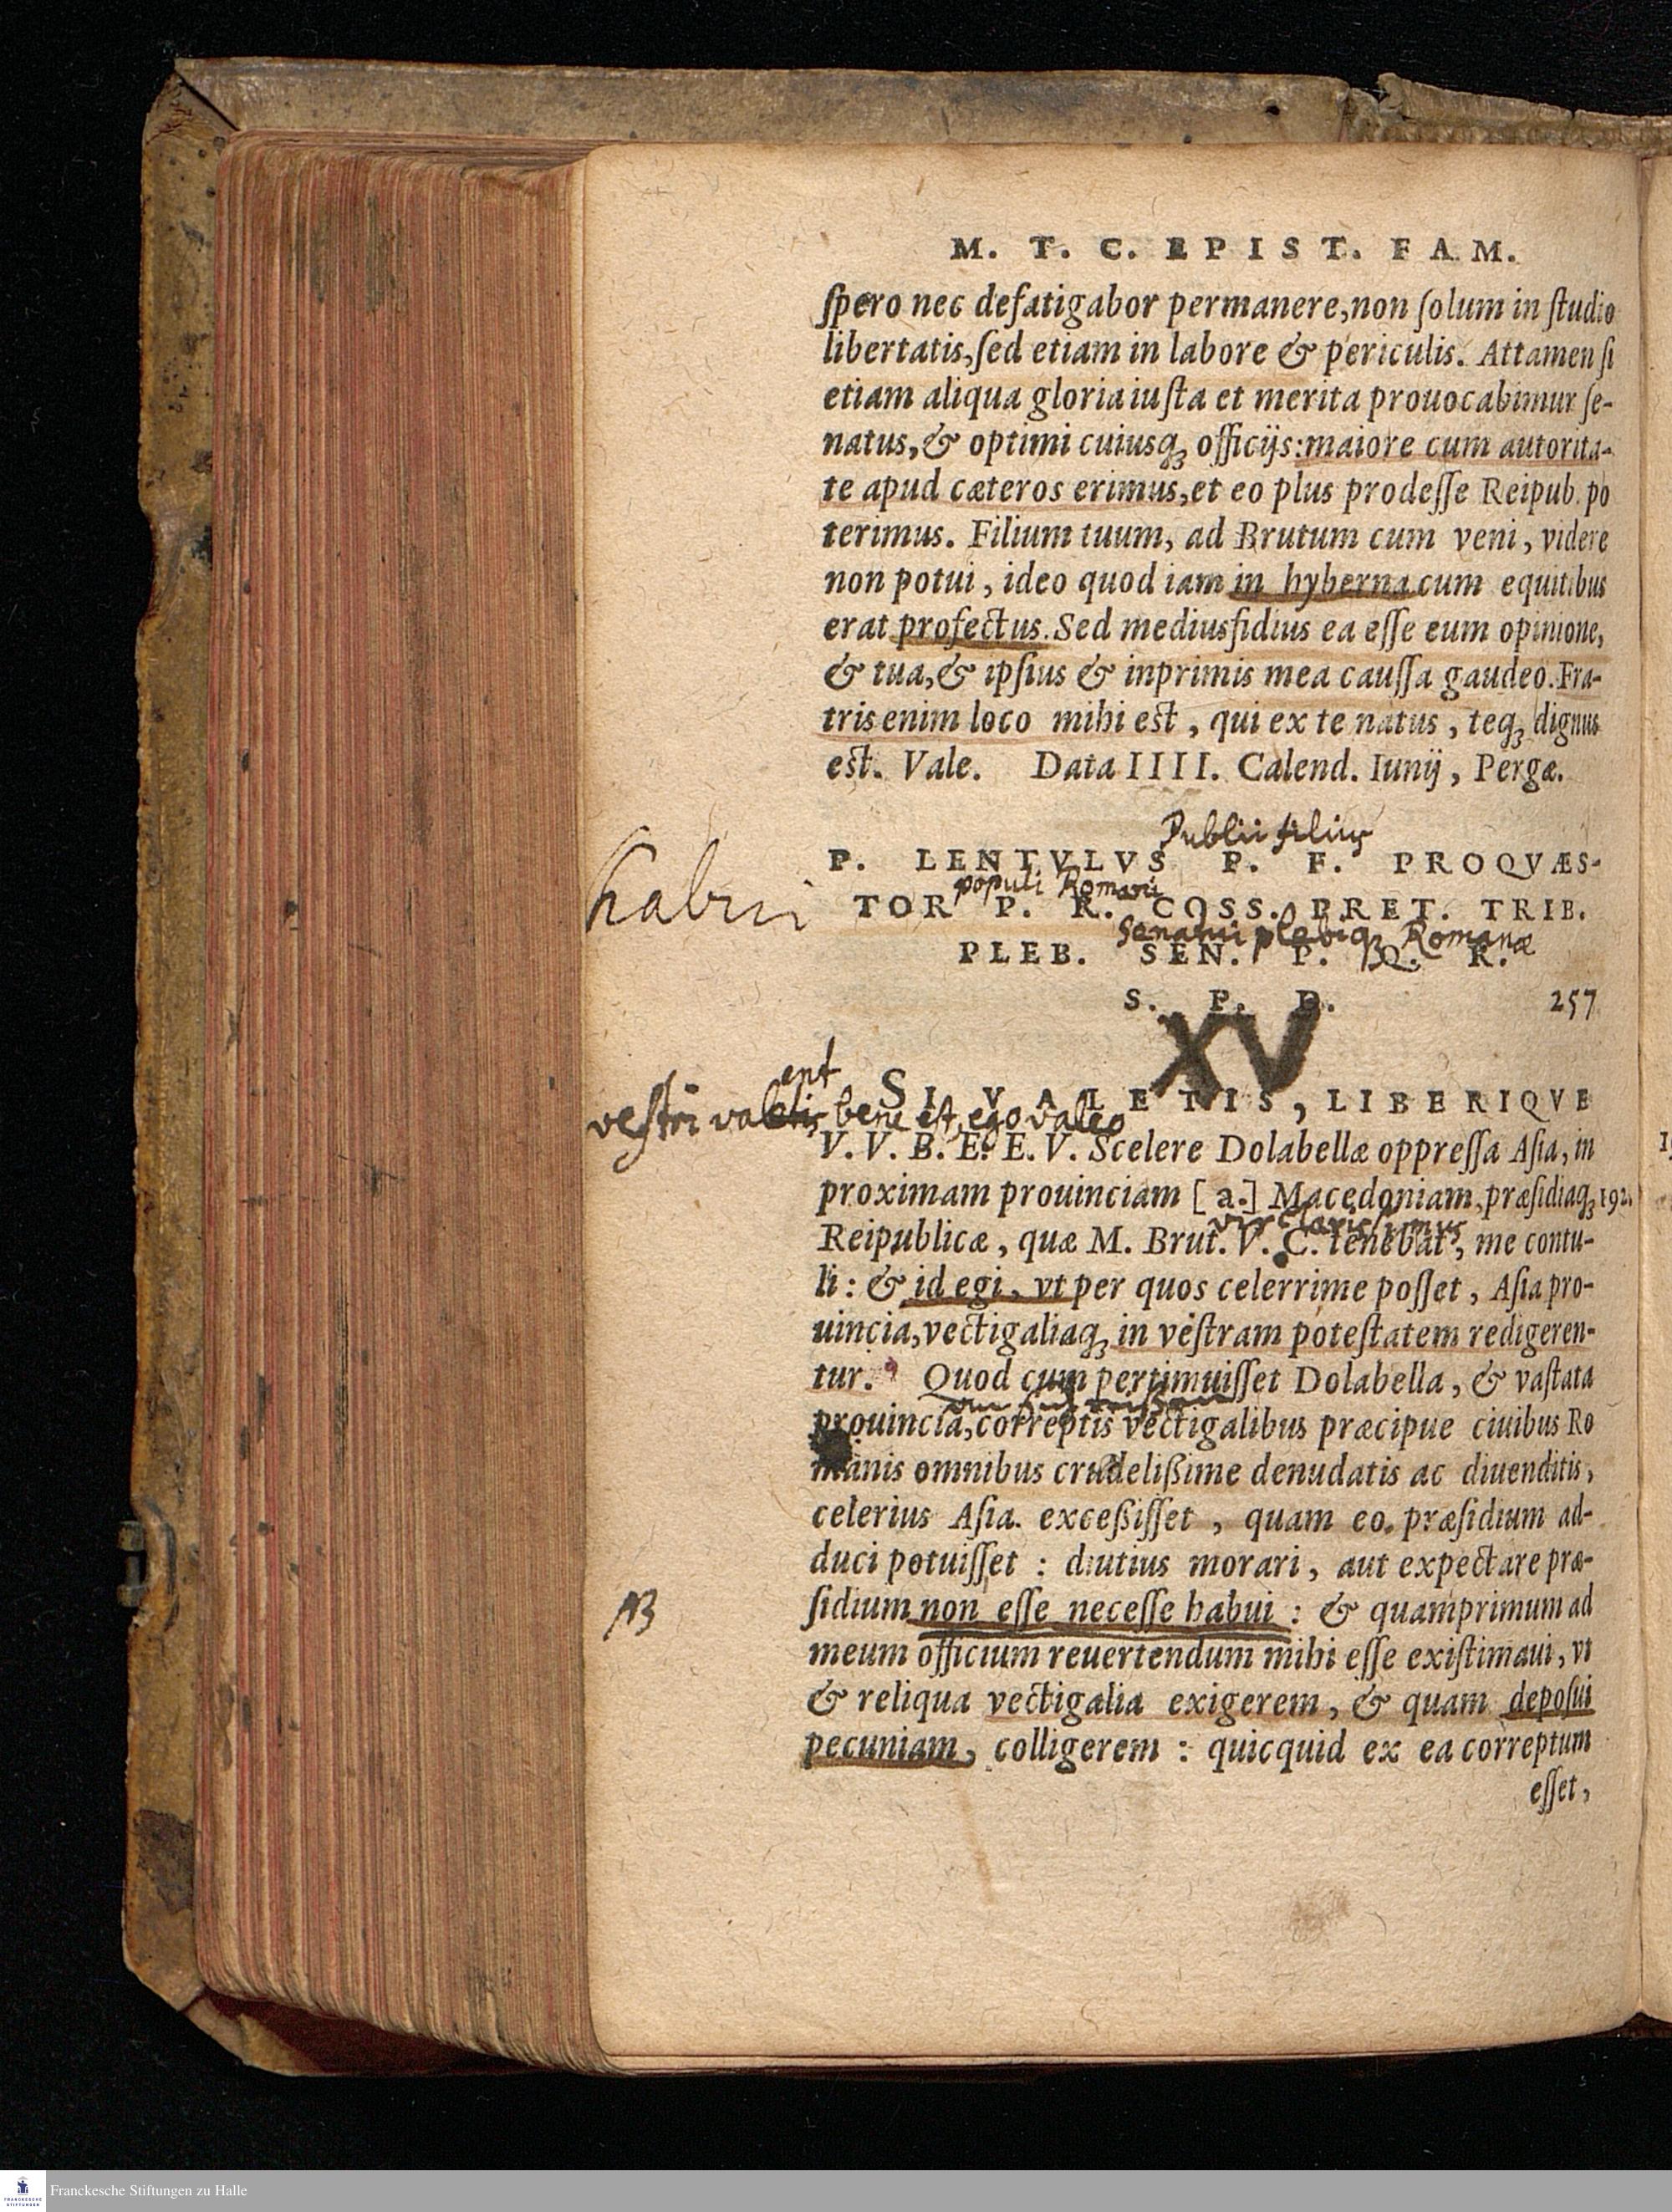 M. T. C. EPIST. FAM.
ſpero nec defatigabor permanere, non ſolum in ſtudio
libertatis, ſed etiam in labore & periculis. Attamen ſi
etiam aliqua gloria iuſta et merita prouocabimur ſe-
natus, & optimi cuiusq; officijs: maiore cum autorita-
te apud cæteros erimus, et eo plus prodeſſe Reipub. po
terimus. Filium tuum, ad Brutum cum veni, videre
non potui, ideo quod iam in hyberna cum equitibus
erat profectus. Sed mediusfidius ea eſſe eum opinione,
& tua, & ipſius & inprimis mea cauſſa gaudeo. Fra-
tris enim loco mihi eſt, qui ex te natus, teq; dignus
eſt. Vale. Data IIII. Calend. Iunij, Pergæ.
Publii filius
P. LENTVLVS P. F. PROQVÆS-
populi Romani
habui
TOR P. R. COSS. PRET. TRIB.
Senatui plebiq; Romanæ
PLEB. SEN. P. Q. R.
S. P. D. 257
XV
ent
SI VALETIS, LIBERIQVE
veſtri valetis bene eſt, ego valeo
V. V. B. E. E. V. Scelere Dolabellæ oppreſſa Aſia, in
proximam prouinciam [a.] Macedoniam, præſidiaq; 192.
vir Clarissimus
Reipublicæ, quæ M. Brut. V. C. tenebat, me contu-
li: & id egi, vt per quos celerrime poſſet, Aſia pro-
uincia, vectigaliaq; in veſtram poteſtatem redigeren-
tur. Quod cum pertimuiſſet Dolabella, & vaſtata
prouincia, correptis vectigalibus præcipue ciuibus Ro
manis omnibus crudelißime denudatis ac diuenditis,
celerius Aſia exceßiſſet, quam eo præſidium ad-
duci potuiſſet: diutius morari, aut expectare præ-
NB
ſidium non eſſe neceſſe habui: & quamprimum ad
meum officium reuertendum mihi eſſe exiſtimaui, vt
& reliqua vectigalia exigerem, & quam depoſui
pecuniam, colligerem: quicquid ex ea correptum
eſſet,
Franckesche Stiftungen zu Halle